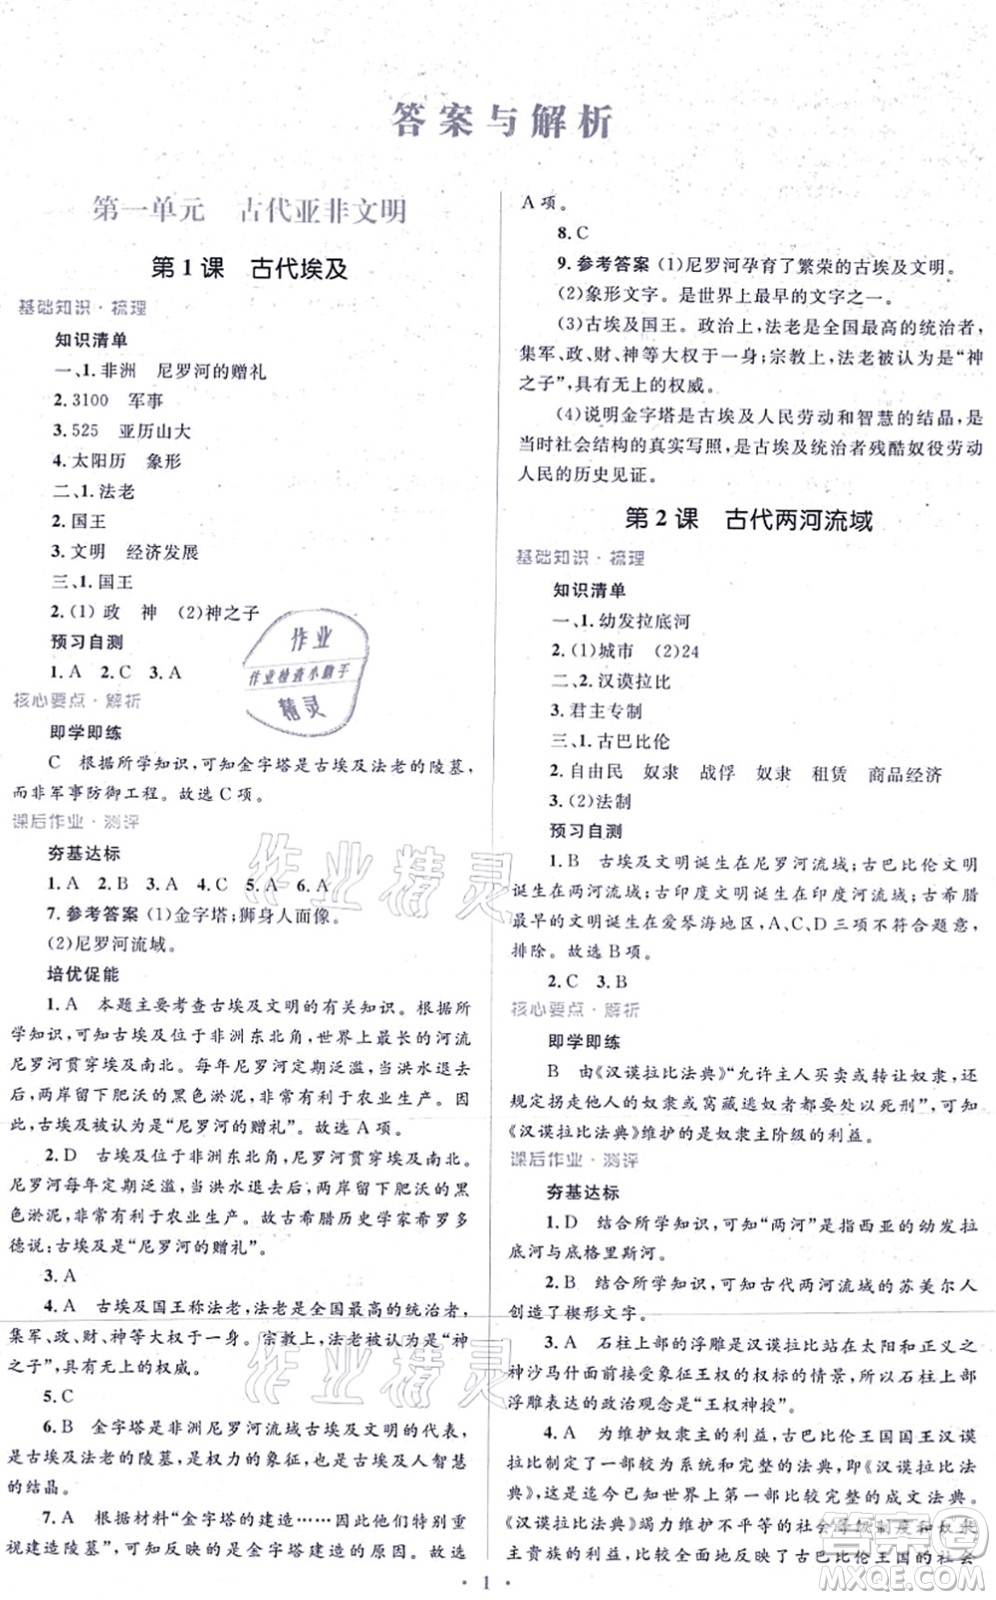 答案与解析
第一单元　古代亚非文明
第1课　古代埃及
基础知识·梳理
知识清单
一、1.非洲　尼罗河的赠礼
2.3100　军事
3.525　亚历山大
4.太阳历　象形
二、1.法老
2.国王
3.文明　经济发展
三、1.国王
2.(1)政　神　(2)神之子
预习自测
1.A　2.C　3.A
核心要点·解析
即学即练
C　根据所学知识,可知金字塔是古埃及法老的陵墓,
而非军事防御工程。故选C项。
课后作业·测评
夯基达标
1.A　2.B　3.A　4.C　5.A　6.A
7.参考答案　(1)金字塔;狮身人面像。
(2)尼罗河流域。
培优促能
1.A　本题主要考查古埃及文明的有关知识。根据所
学知识,可知古埃及位于非洲东北角,世界上最长的河流
尼罗河贯穿埃及南北。每年尼罗河定期泛滥,当洪水退去
后,两岸留下肥沃的黑色淤泥,非常有利于农业生产。因
此,古埃及被认为是“尼罗河的赠礼”。故选A项。
2.D　古埃及位于非洲东北角,尼罗河贯穿埃及南北。
尼罗河每年定期泛滥,当洪水退去后,两岸留下肥沃的黑
色淤泥,非常有利于农业生产。故古希腊历史学家希罗多
德说:古埃及是“尼罗河的赠礼”。
3.A
4.A　古埃及国王称法老,法老是全国最高的统治者,
集军、政、财、神等大权于一身。宗教上,法老被认为是“神
之子”,具有无上的权威。
5.C
6.B　金字塔是非洲尼罗河流域古埃及文明的代表,
是古埃及法老的陵墓,是权力的象征,也是古埃及人智慧
的结晶。
7.A　根据材料“金字塔的建造……因此他们特别重
视建造陵墓”,可知反映的是金字塔建造的原因。故选
A项。
8.C
9.参考答案　(1)尼罗河孕育了繁荣的古埃及文明。
(2)象形文字。是世界上最早的文字之一。
(3)古埃及国王。政治上,法老是全国最高的统治者,
集军、政、财、神等大权于一身;宗教上,法老被认为是“神
之子”,具有无上的权威。
(4)说明金字塔是古埃及人民劳动和智慧的结晶,是
当时社会结构的真实写照,是古埃及统治者残酷奴役劳动
人民的历史见证。
第2课　古代两河流域
基础知识·梳理
知识清单
一、1.幼发拉底河
2.(1)城市　(2)24
二、2.汉谟拉比
3.君主专制
三、1.古巴比伦
2.自由民　奴隶　战俘　奴隶　租赁　商品经济
3.(2)法制
预习自测
1.B　古埃及文明诞生在尼罗河流域;古巴比伦文明
诞生在两河流域;古印度文明诞生在印度河流域;古希腊
最早的文明诞生在爱琴海地区,A、C、D三项不符合题意,
排除。故选B项。
2.C　3.B
核心要点·解析
即学即练
B　由《汉谟拉比法典》“允许主人买卖或转让奴隶,还
规定拐走他人的奴隶或窝藏逃奴者都要处以死刑”,可知
《汉谟拉比法典》维护的是奴隶主阶级的利益。
课后作业·测评
夯基达标
1.D　结合所学知识,可知“两河”是指西亚的幼发拉
底河与底格里斯河。
2.B　结合所学知识,可知古代两河流域的苏美尔人
创造了楔形文字。
3.A　石柱上部的浮雕是汉谟拉比站在太阳和正义之
神沙马什面前接受象征王权的权标,所以这个石柱上部
浮雕表达的政治观念是“王权神授”。
4.A　为维护奴隶主的利益,古巴比伦王国国王汉谟
拉比制定了一部较为系统和完整的法典,即《汉谟拉比法
典》,这是迄今已知世界上第一部比较完整的成文法典。
《汉谟拉比法典》竭力维护不平等的社会等级制度和奴隶
主贵族的利益,比较全面地反映了古巴比伦王国的社会
·1·
作业
作业检查小助手
精灵
作业精灵
作业精灵
答案圈
MXQE.COM